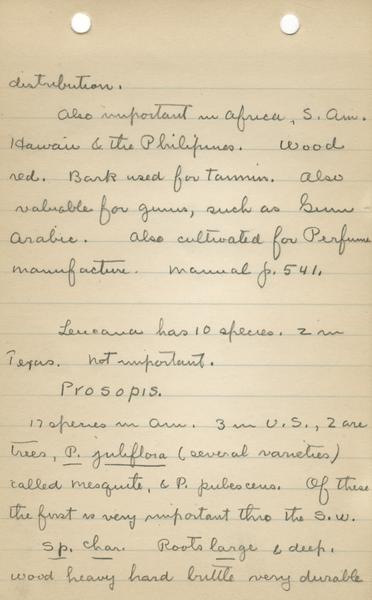 distribution.
Also important in Africa, S. Am.
Hawaii & the Philipines. Wood
red. Bark used for Tannin. Also
valuable for gums, such as Gum
Arabic. Also cultivated for Perfume
manufacture. Manual p. 541.
Leucaena has 10 species. 2 in
Texas. Not important.
Prosopis.
17 species in Am. 3 in U.S., 2 are
Trees, P. juliflora (several varieties)
called mesquite, & P. pubescens. Of these
the first is very important thro the S.W.
Sp. Char. Roots large & deep.
Wood heavy hard brittle very durable